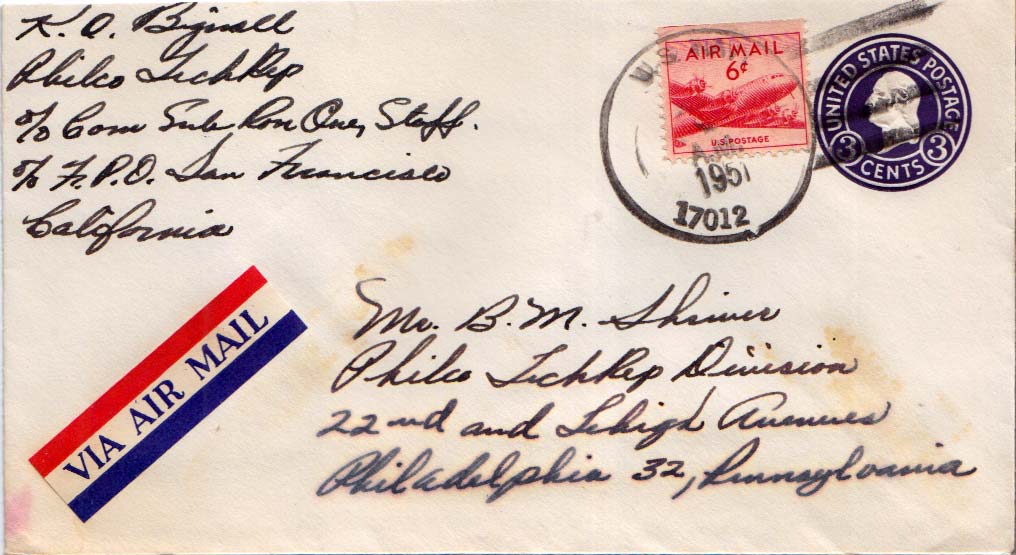 K. O. Bignall
Philco TechRep
c/o Com Sub Ron One, Staff.
c/o F.P.O. San Francisco
California
U.S.
A.M.
1951
17012
U.S. AIR MAIL
6¢
U.S. POSTAGE
UNITED STATES POSTAGE
3 CENTS 3
VIA AIR MAIL
Mr. B. M. Shriver
Philco TechRep Division
22nd and Lehigh Avenues
Philadelphia 32, Pennsylvania